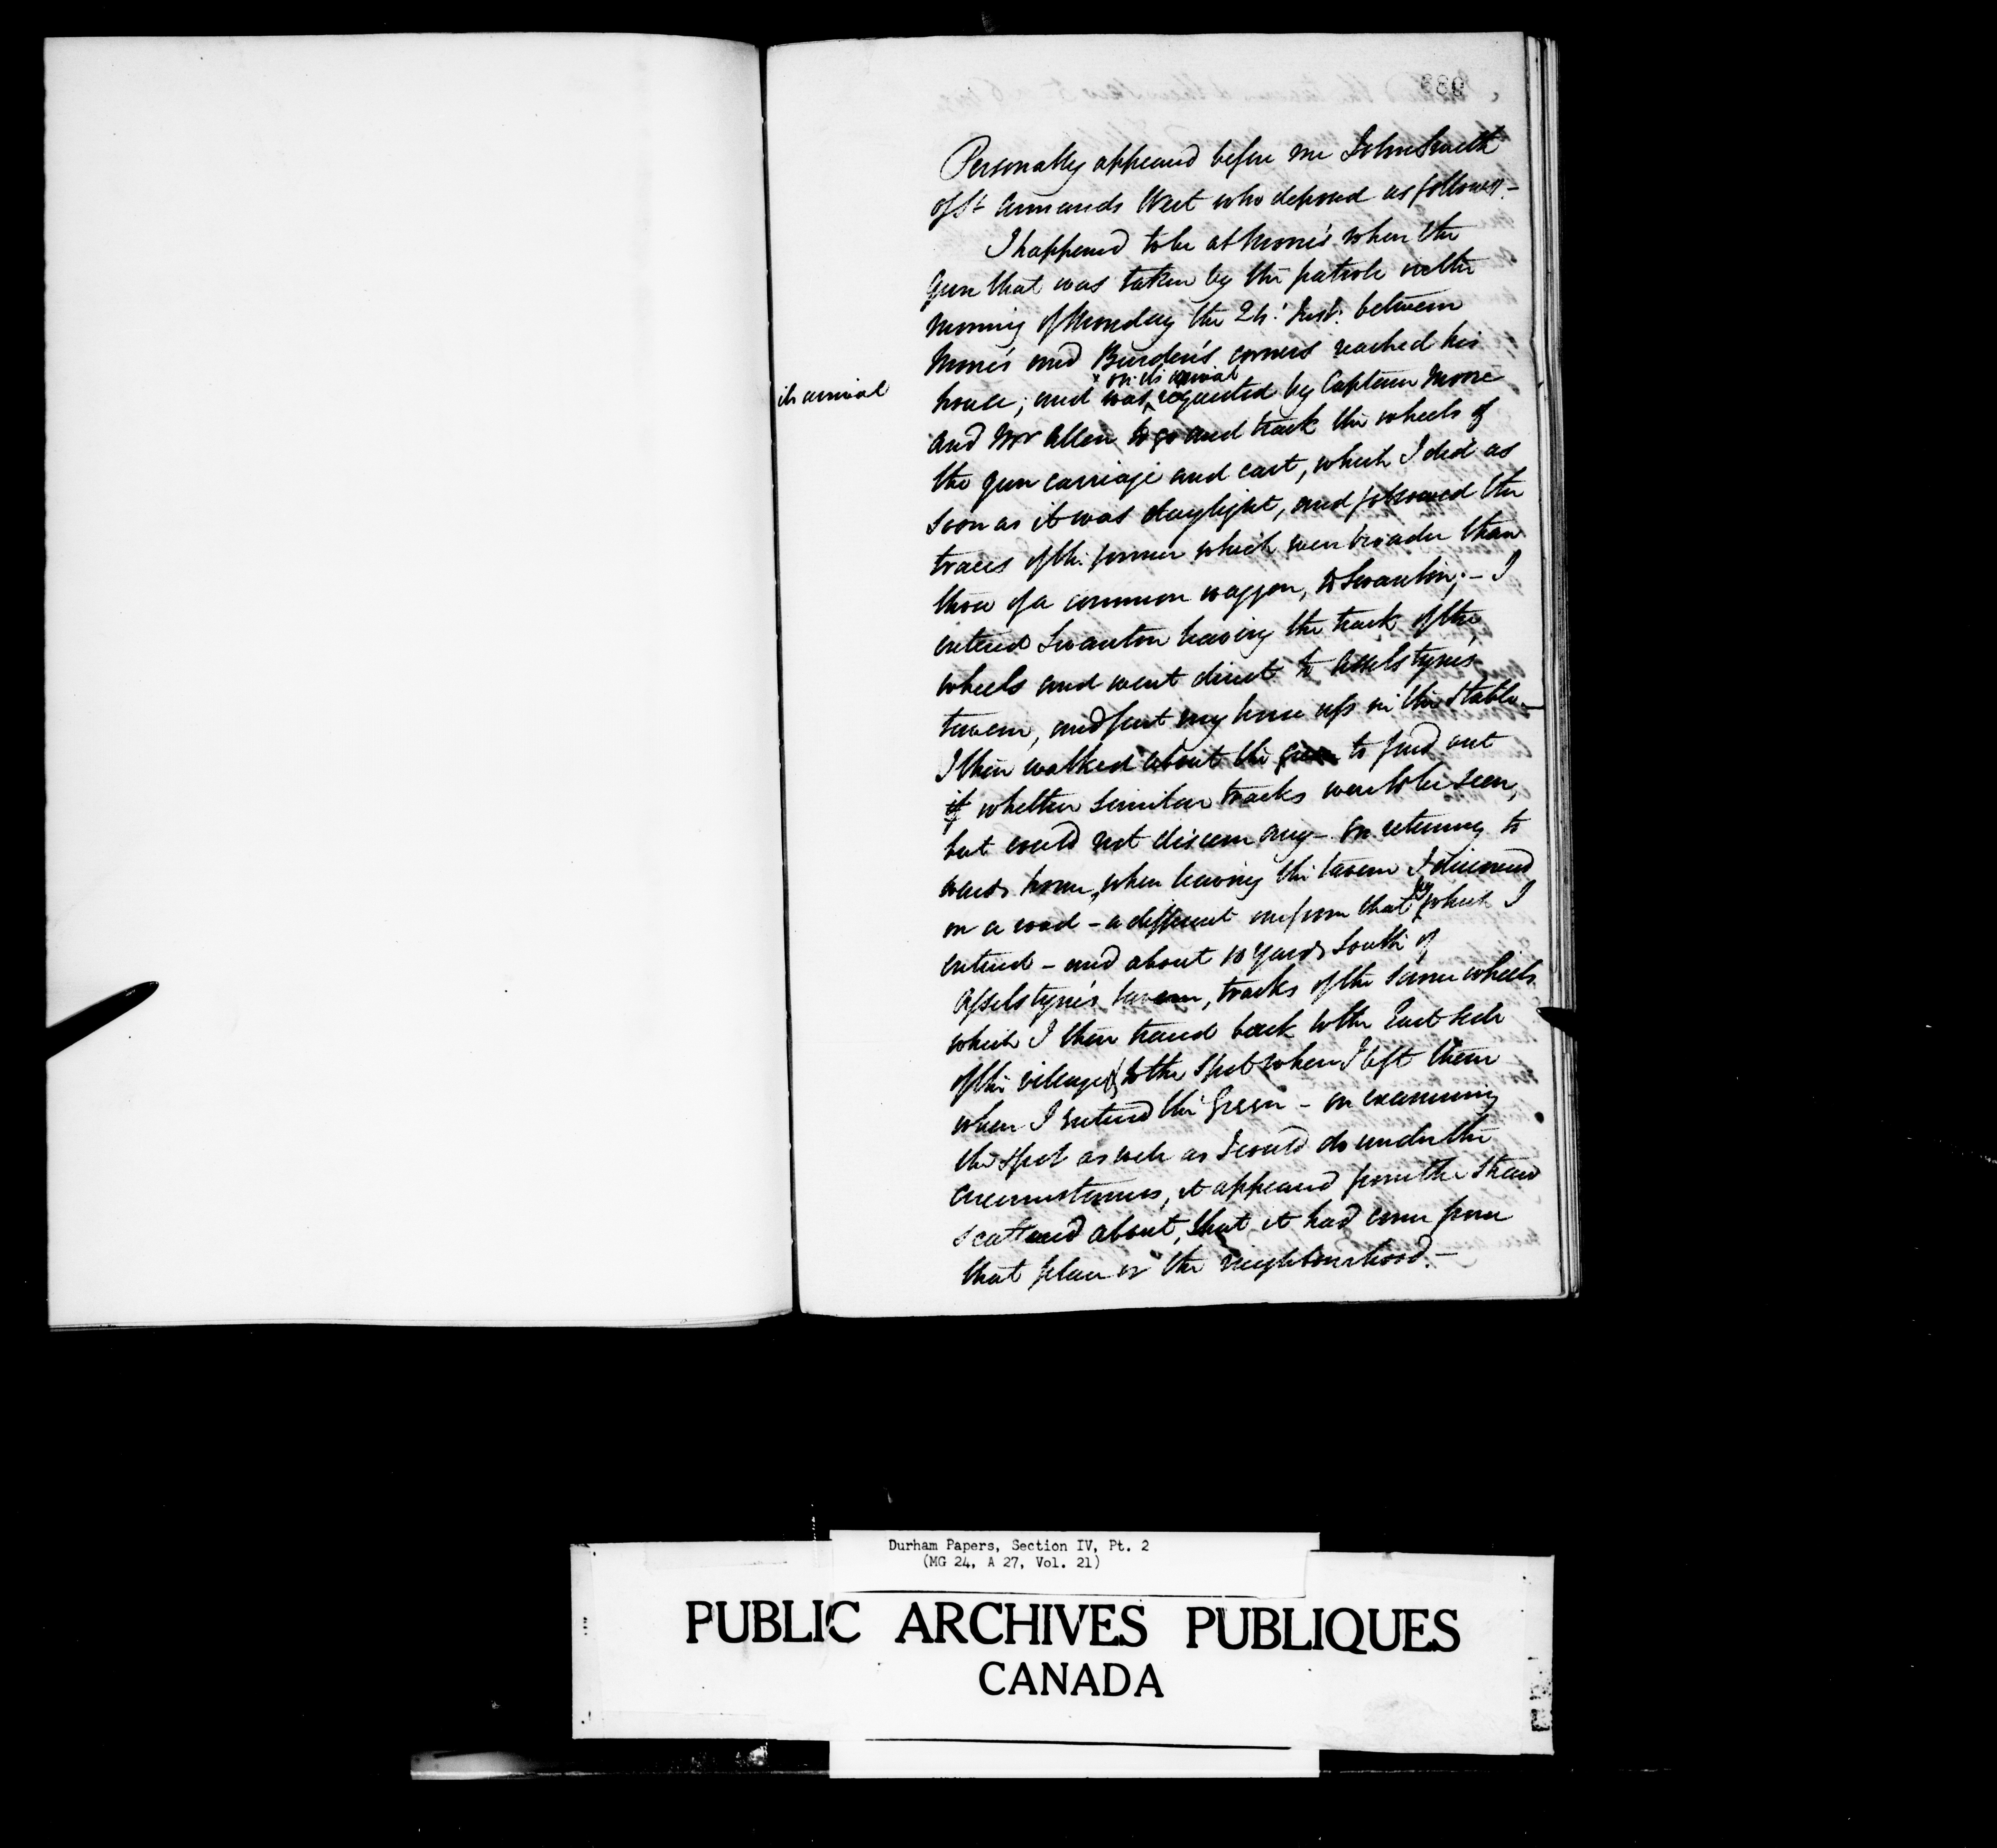 680
Personally appeared before me John Smith
of St Armands West who deposed as follows. -
I happened to be at Moore's when the
gun that was taken by the patrole in the
morning of Monday the 2h. Inst. between
Moore's and Burden's corners reached his
on its arrival
its arrival
house; and was requested by Captain Moore
and Mr Allen to go and track the wheels of
the gun carriage and cart, which I did as
soon as it was daylight, and followed the
traces of the former which were broader than
those of a common waggon, to Swanton; - I
entered Swanton leaving the track of the
wheels and went direct to Asselstyne's
tavern, and put my horse up in the stable -
I then walked about the green to find out
if whether similar tracks were to be seen,
but could not discern any - on returning to
wards home, when leaving the tavern I discovered
on a road - a different one from that by which I
entered - and about 10 yards South of
Asselstyne's tavern, tracks of the same wheels
which I then traced back to the East side
of the village & to the spot where I left them
when I entered the Green - on examining
the spot as well as I could do under the
circumstances, it appeared from the straw
scattered about, that it had come from
that place or the neighbourhood. -
Durham Papers, Section IV, Pt. 2
(MG 24, A 27, Vol. 21)
PUBLIC ARCHIVES PUBLIQUES
CANADA